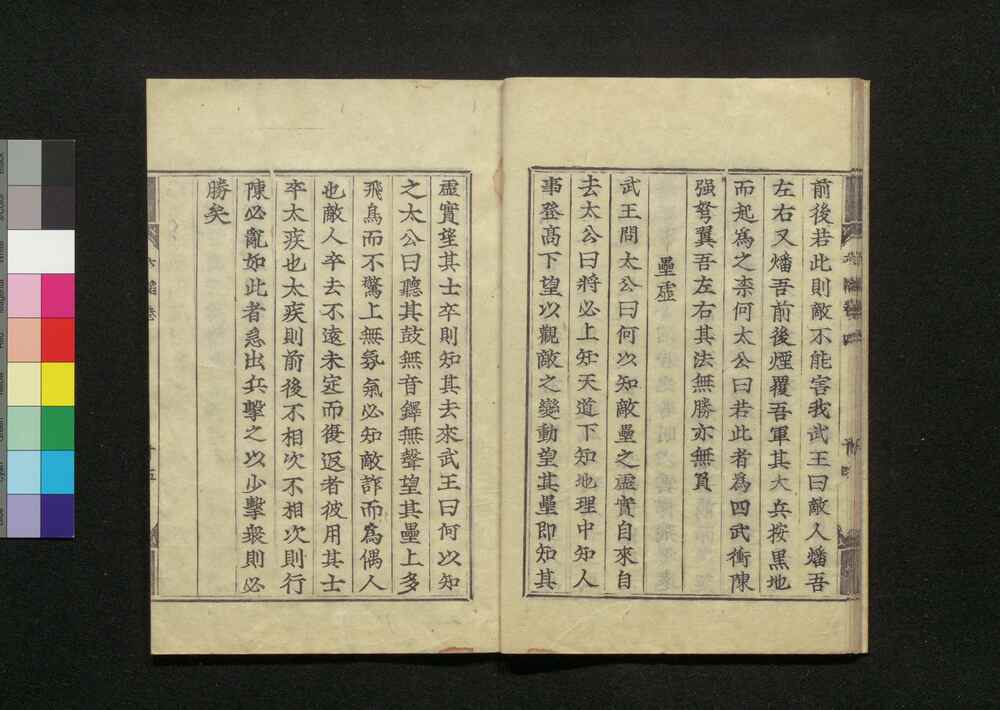 前後若此則敵不能害我武王曰敵人燔吾
左右又燔吾前後煙覆吾軍其大兵按黑地
而起爲之柰何太公曰若此者爲四武衝陳
强弩翼吾左右其法無勝亦無負
壘虛
武王問太公曰何以知敵壘之虛實自來自
去太公曰將必上知天道下知地理中知人
事登高下望以觀敵之變動望其壘即知其
虛實望其士卒則知其去來武王曰何以知
之太公曰聽其鼓無音鐸無聲望其壘上多
飛鳥而不驚上無氛氣必知敵詐而爲偶人
也敵人卒去不遠未定而復返者彼用其士
卒太疾也太疾則前後不相次不相次則行
陳必亂如此者急出兵擊之以少擊衆則必
勝矣
六韜卷
十五